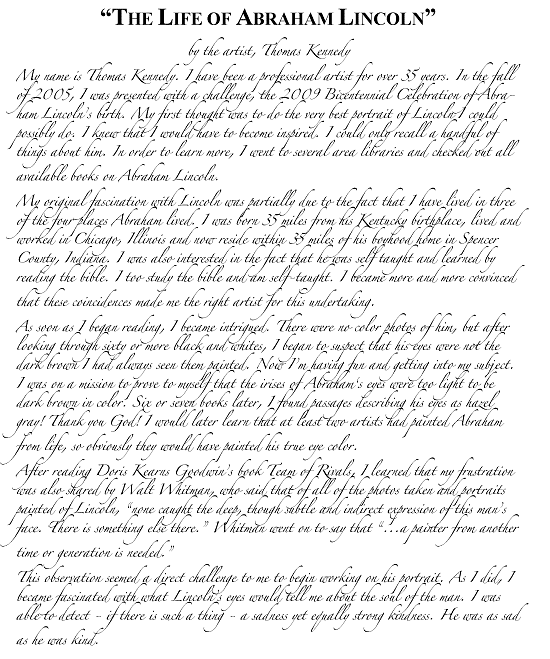 “THE LIFE OF ABRAHAM LINCOLN”
by the artist, Thomas Kennedy
My name is Thomas Kennedy. I have been a professional artist for over 35 years. In the fall
of 2005, I was presented with a challenge, the 2009 Bicentennial Celebration of Abra-
ham Lincoln's birth. My first thought was to do the very best portrait of Lincoln I could
possibly do. I knew that I would have to become inspired. I could only recall a handful of
things about him. In order to learn more, I went to several area libraries and checked out all
available books on Abraham Lincoln.
My original fascination with Lincoln was partially due to the fact that I have lived in three
of the four places Abraham lived. I was born 35 miles from his Kentucky birthplace, lived and
worked in Chicago, Illinois and now reside within 35 miles of his boyhood home in Spencer
County, Indiana. I was also interested in the fact that he was self taught and learned by
reading the bible. I too study the bible and am self-taught. I became more and more convinced
that these coincidences made me the right artist for this undertaking.
As soon as I began reading, I became intrigued. There were no color photos of him, but after
looking through sixty or more black and whites, I began to suspect that his eyes were not the
dark brown I had always seen them painted. Now I'm having fun and getting into my subject.
I was on a mission to prove to myself that the irises of Abraham's eyes were too light to be
dark brown in color. Six or seven books later, I found passages describing his eyes as hazel
gray! Thank you God! I would later learn that at least two artists had painted Abraham
from life, so obviously they would have painted his true eye color.
After reading Doris Kearns Goodwin's book Team of Rivals, I learned that my frustration
was also shared by Walt Whitman, who said that of all of the photos taken and portraits
painted of Lincoln, “none caught the deep, though subtle and indirect expression of this man's
face. There is something else there.” Whitman went on to say that “...a painter from another
time or generation is needed.”
This observation seemed a direct challenge to me to begin working on his portrait. As I did, I
became fascinated with what Lincoln's eyes would tell me about the soul of the man. I was
able to detect - if there is such a thing - a sadness yet equally strong kindness. He was as sad
as he was kind.